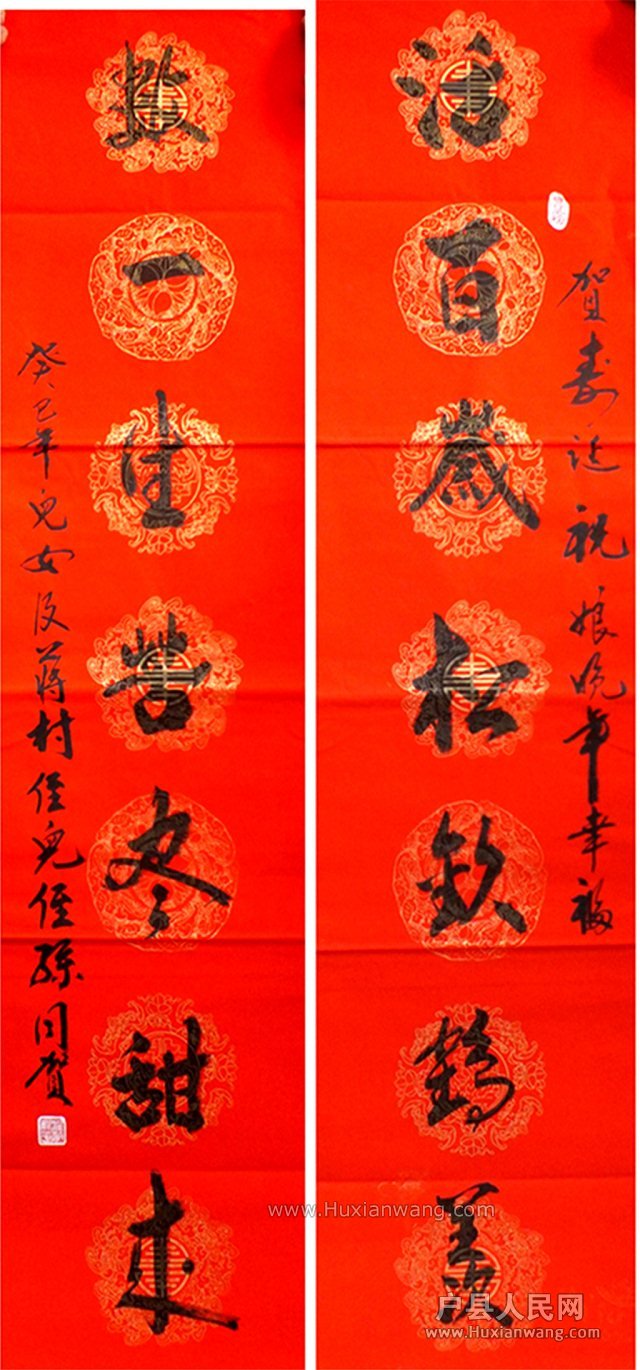 贺寿诞祝娘晚年幸福
活百歲松钦鹤羡
数一往苦尽甜来
癸巳年儿女及蒋村侄儿侄孙同贺
www.Huxianwang.com
户县人民网
www.Huxianwang.com